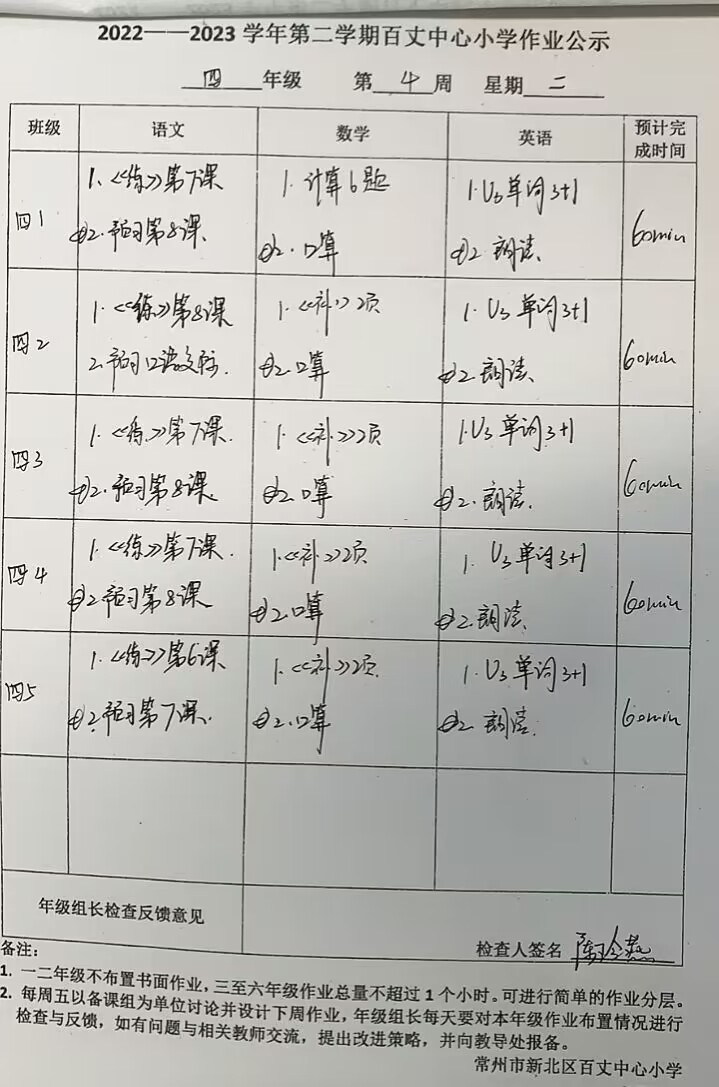 2022——2023 学年第二学期百丈中心小学作业公示
四 年级 第 4 周 星期 二
班级 语文 数学 英语 预计完成时间
四1
1、《练》第7课
②2.预习第8课
1.计算6题
②2.口算
1.U3单词3+1
②2.朗读
60min
四2
1.《练》第8课
2.预习口语交际.
1.《补》2页
②2.口算
1.U3单词3+1
②2.朗读
60min
四3
1.《练》第7课.
②2.预习第8课.
1.《补》2页
②2.口算
1.U3单词3+1
②2.朗读.
60min
四4
1.《练》第7课.
②2预习第8课
1.《补》2页
②2.口算
1.U3单词3+1
②2.朗读.
60min
四5
1.《练》第6课
②2.预习第7课.
1.《补》2页.
②2.口算
1.U3单词3+1
②2.朗读.
60min
年级组长检查反馈意见
检查人签名
备注:
1. 一二年级不布置书面作业，三至六年级作业总量不超过 1 个小时。可进行简单的作业分层。
2. 每周五以备课组为单位讨论并设计下周作业，年级组长每天要对本年级作业布置情况进行
检查与反馈，如有问题与相关教师交流，提出改进策略，并向教导处报备。
常州市新北区百丈中心小学